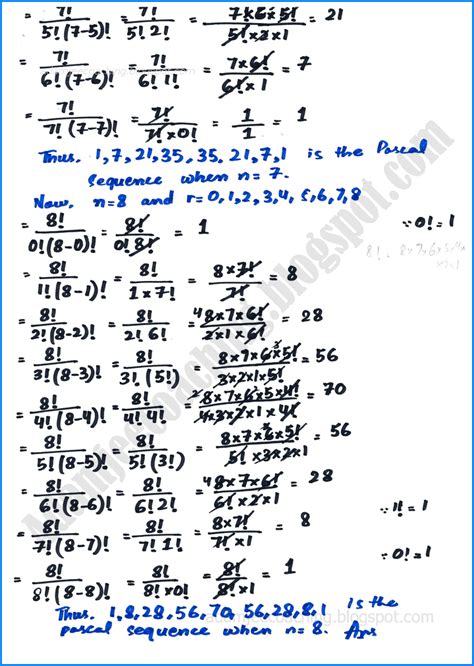 = 7!/5!(7-5)! = 7!/5! 2! = 7×6×5!/5!×2×1 = 21
= 7!/6!(7-6)! = 7!/6! 1! = 7×6!/6!×1 = 7
= 7!/7!(7-7)! = 7!/7!×0! = 1/1 = 1
Thus. 1,7,21,35,35,21,7,1 is the Pascal
sequence when n=7.
Now. n=8 and r=0,1,2,3,4,5,6,7,8
= 8!/0!(8-0)! = 8!/0!8! = 1 ∵0!=1
= 8!/1!(8-1)! = 8!/1×7! = 8×7!/7! = 8
= 8!/2!(8-2)! = 8!/2! 6! = 4 8×7×6!/2×1×6! = 28
= 8!/3!(8-3)! = 8!/3!(5!) = 8×7×6×5!/3×2×1×5! = 56
= 8!/4!(8-4)! = 8!/4! 4! = 8×7×6×5×4!/4×3×2×1×4! = 70
= 8!/5!(8-5)! = 8!/5!(3!) = 8×7×6×5!/5!×3×2×1 = 56
= 8!/6!(8-6)! = 8!/6! 2! = 4 8×7×6!/6!×2×1 = 28
= 8!/7!(8-7)! = 8!/7! 1! = 8×7!/7!×1 = 8 ∵1!=1
= 8!/8!(8-8)! = 8!/8!×0! = 8!/8!×1 = 1 ∵0!=1
Thus. 1,8,28,56,70,56,28,8,1 is the
pascal sequence when n=8. Ans
adamjeecoaching.blogspot.com